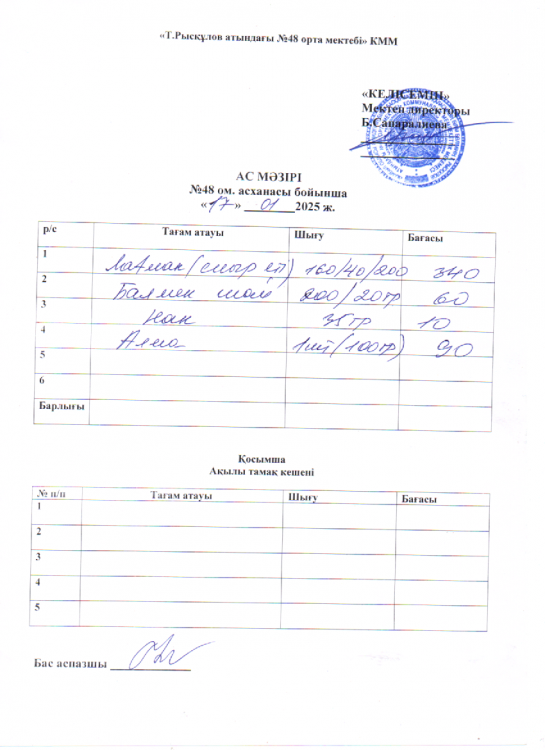 «Т.Рысқұлов атындағы №48 орта мектебі» КММ
«КЕЛІСЕМІН»
Мектеп директоры
Б.Сапаралиева
АС МӘЗІРІ
№48 ом. асханасы бойынша
«17» 01 2025 ж.
р/с Тағам атауы Шығу Бағасы
1 Лағман (сиыр еті) 160/40/200 340
2 Балмен шай 200/20гр 60
3 Нан 35гр 10
4 Алма 1шт (100гр) 90
5
6
Барлығы
Қосымша
Ақылы тамақ кешені
№ п/п Тағам атауы Шығу Бағасы
1
2
3
4
5
Бас аспазшы